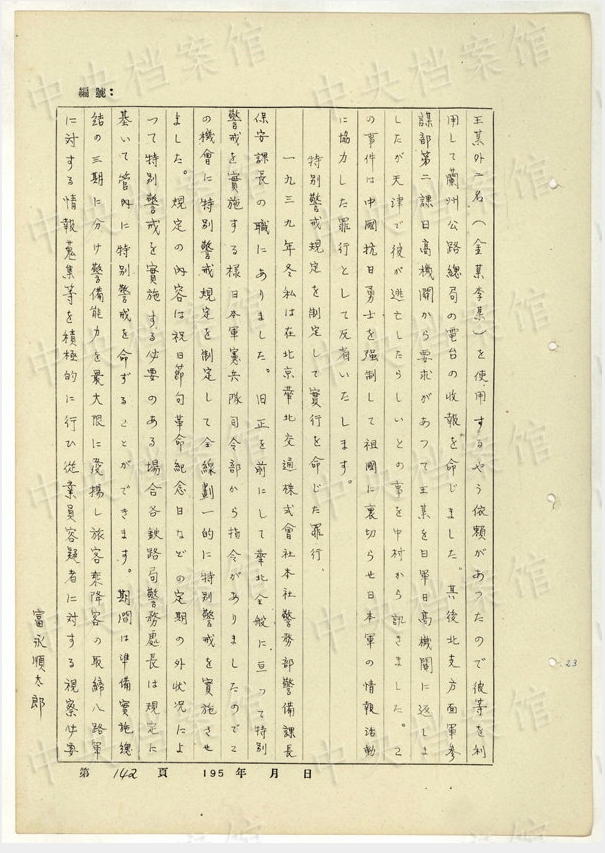 編號:
王某外二名(金某李某)を使用するやう依頼があつたので彼等を利
用して蘭州公路總局の電台の收報を命じました。其後北支方面軍参
謀部第二課日高機関から要求があつて王某を日軍日高機関に返しま
したが天津で彼が逃亡したらしいとの事を中村から訊きました。こ
の事件は中國抗日勇士を强制して祖國に裏切らせ日本軍の情報活動
に協力した罪行として反省いたします。
特別警戒規定を制定して實行を命じた罪行、
一九三九年冬私は在北京華北交通株式會社本社警務部警備課長
保安課長の職にありました。旧正を前にして華北全般に亘つて特別
警戒を實施する様日本軍憲兵隊司令部から指令がありましたのでこ
の機會に特別警戒規定を制定して全線劃一的に特別警戒を實施させ
ました。規定の内容は祝日節句革命紀念日などの定期の外状況によ
つて特別警戒を實施する必要のある場合各鉄路局警務處長は規定に
基いて管内に特別警戒を命ずることができます。期間は準備實施總
結の三期に分け警備能力を最大限に發揚し旅客乘降客の取締八路軍
に対する情報蒐集等を積極的に行ひ從業員容疑者に対する視察必要
富永順太郎
第 142 頁 195 年 月 日
23
中央档案馆